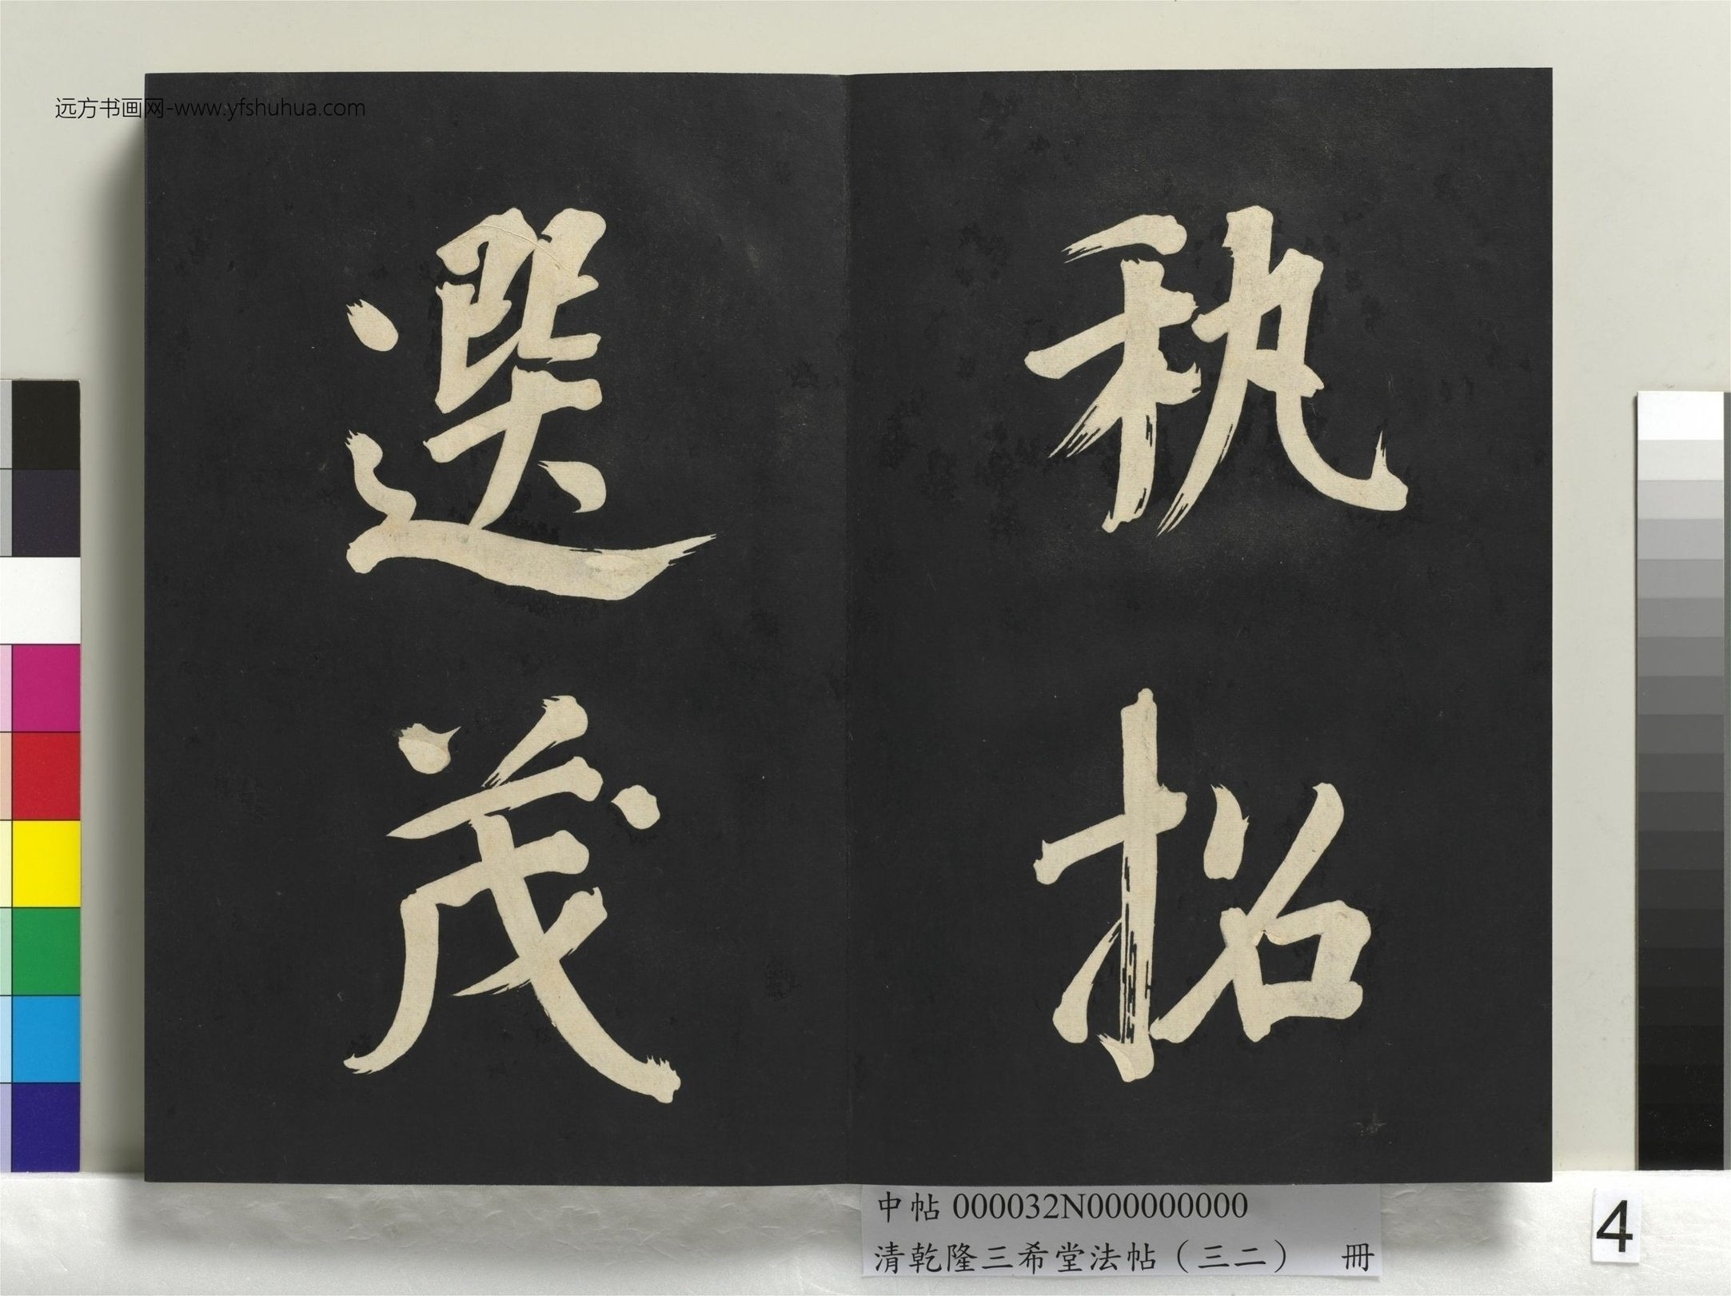 秇招
選茂
远方书画网-www.yfshuhua.com
中帖 000032N000000000
清乾隆三希堂法帖（三二） 冊
4